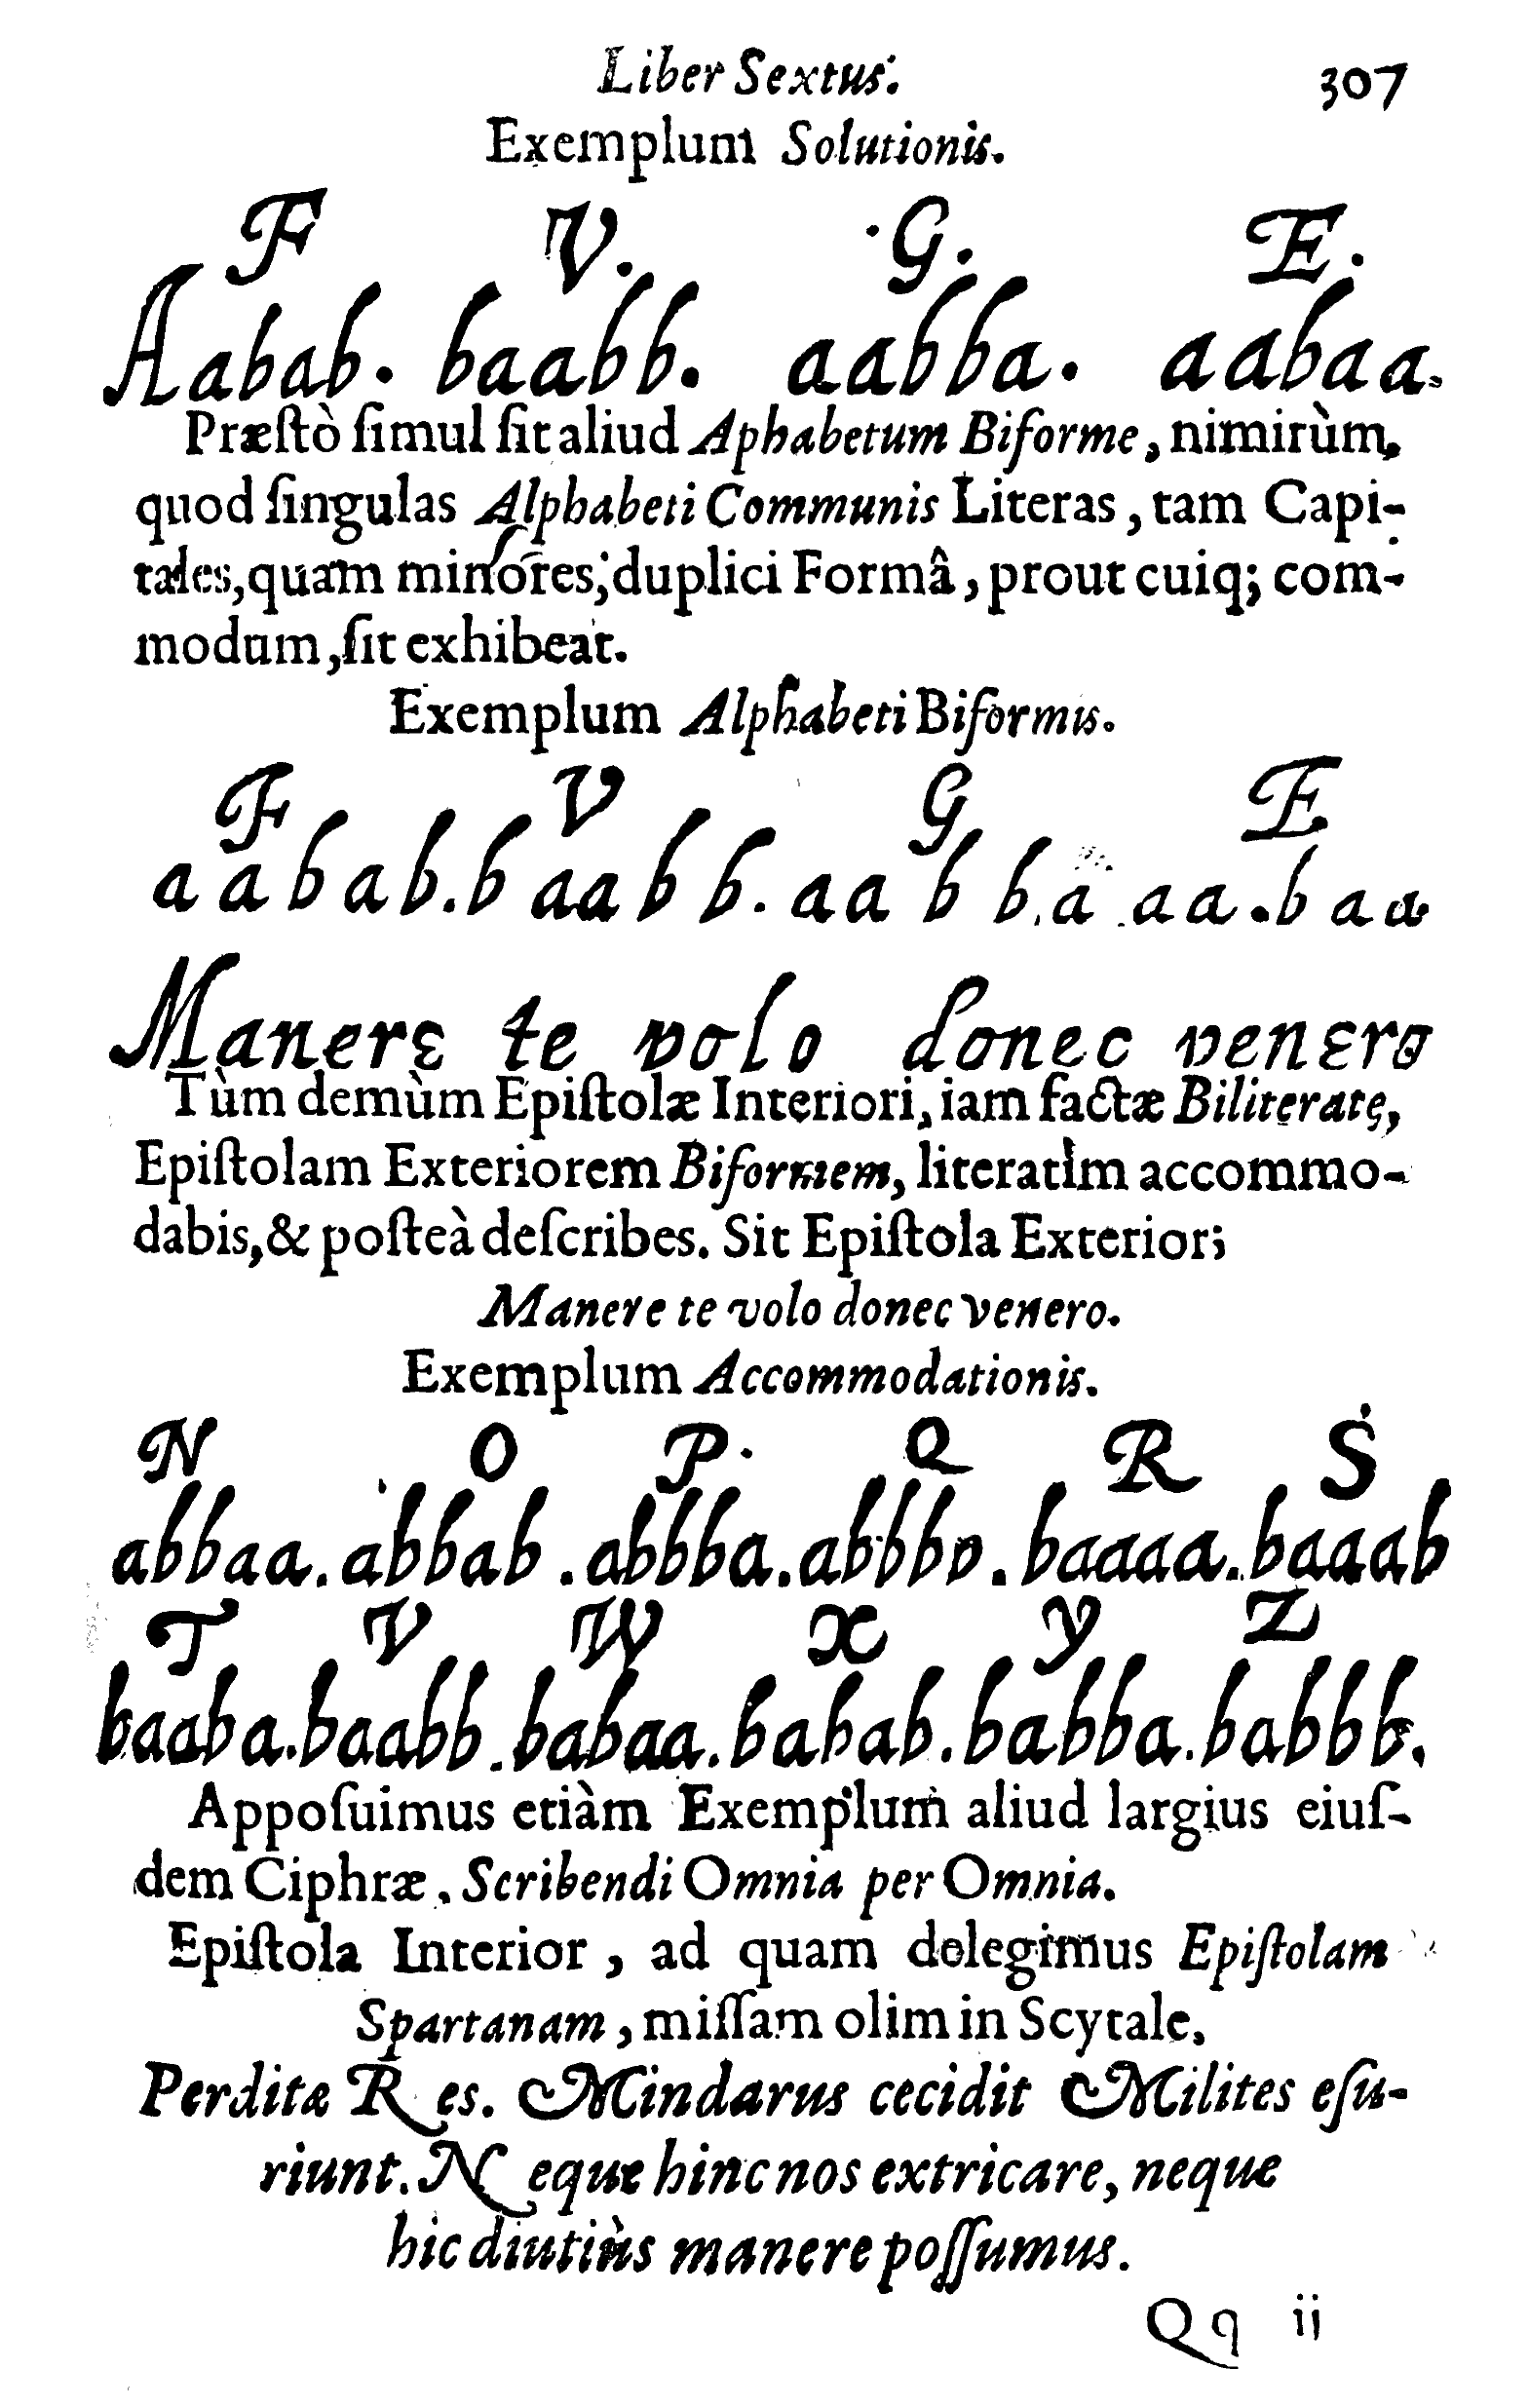 Liber Sextus. 307
Exemplum Solutionis.
F V. G. E.
Aabab. baabb. aabba. aabaa.
Præſtò ſimul ſit aliud Aphabetum Biforme, nimirùm,
quod ſingulas Alphabeti Communis Literas, tam Capi-
tales, quam minores, duplici Formâ, prout cuiq; com-
modum, ſit exhibeat.
Exemplum Alphabeti Biformis.
F V G E
a a b a b. b aa b b. aa b b. a aa. b a a
Manere te volo donec venero
Tùm demùm Epiſtolæ Interiori, iam factæ Biliteratę,
Epiſtolam Exteriorem Biformem, literatim accommo-
dabis, & poſteà deſcribes. Sit Epiſtola Exterior;
Manere te volo donec venero.
Exemplum Accommodationis.
N O P. Q R S
abbaa. abbab. abbba. abbbb. baaaa. baaab
T V W X Y Z
baaba. baabb. babaa. babab. babba. babbb.
Appoſuimus etiàm Exemplum aliud largius eiuſ-
dem Ciphræ, Scribendi Omnia per Omnia.
Epiſtola Interior, ad quam delegimus Epiſtolam
Spartanam, miſſam olim in Scytale,
Perditæ Res. Mindarus cecidit Milites eſu-
riunt. Neque hinc nos extricare, neque
hic diutiùs manere poſſumus.
Qq ij